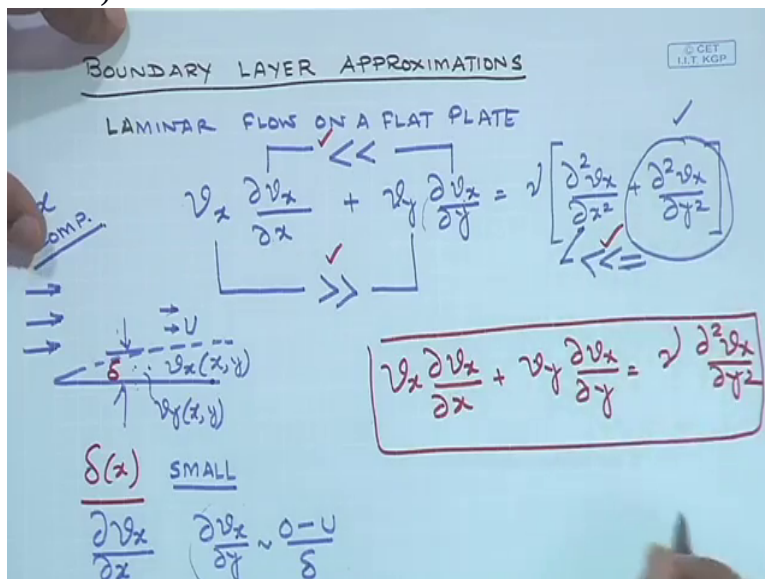 BOUNDARY LAYER APPROXIMATIONS
© CET
I.I.T. KGP
LAMINAR FLOW ON A FLAT PLATE
<<
x
COMP.
𝜗x ∂𝜗x/∂x + 𝜗y ∂𝜗x/∂y = ν [∂²𝜗x/∂x² + ∂²𝜗x/∂y²]
>>
<<=
U
δ
𝜗x(x,y)
𝜗y(x,y)
𝜗x ∂𝜗x/∂x + 𝜗y ∂𝜗x/∂y = ν ∂²𝜗x/∂y²
δ(x) SMALL
∂𝜗x/∂x ∂𝜗x/∂y ~ 0-U/δ